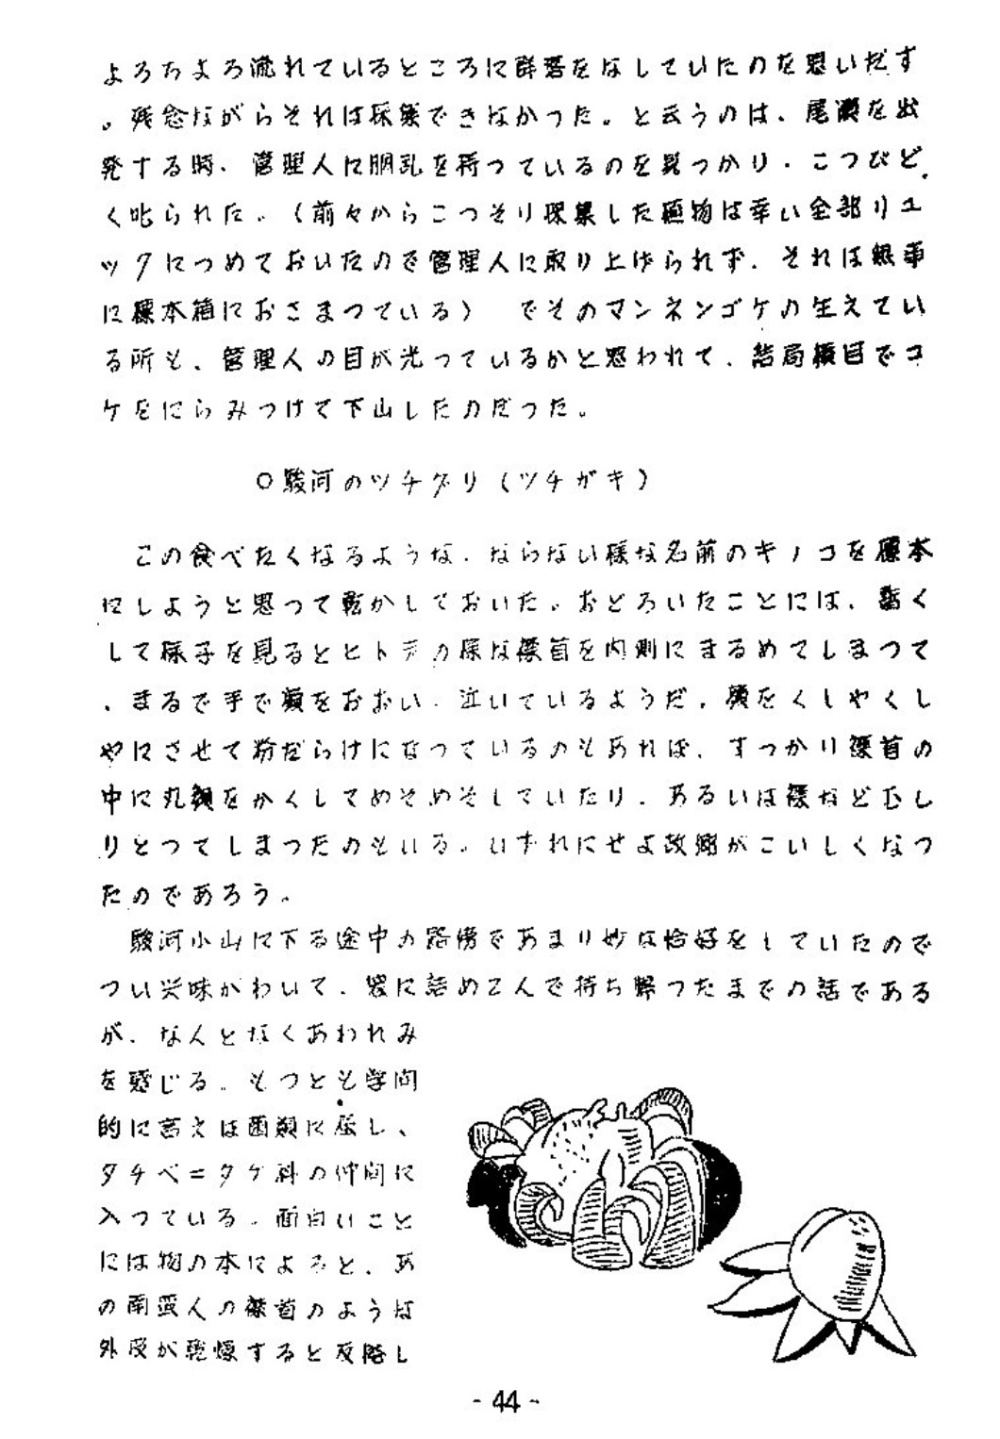 よろちよろ流れているところに群落をなしていたのを思いだす
。残念ながらそれは採集できなかった。と云うのは、尾瀬を出
発する時、管理人に胴乱を持つているのを見つかり、こつぴど
く叱られた。（前々からこつそり採集した植物は幸い全部リユ
ックにつめておいたので管理人に取り上げられず、それは無事
に標本箱におさまつている）　でそのマンネンゴケの生えてい
る所も、管理人の目が光つているかと思われて、結局横目でコ
ケをにらみつけて下山したのだつた。
○駿河のツチグリ（ツチガキ）
この食べたくなるような、ならない様な名前のキノコを標本
にしようと思つて乾かしておいた。おどろいたことには、暫く
して様子を見るとヒトデの様な襟首を内側にまるめてしまつて
、まるで手で顔をおおい、泣いているようだ。顔をくしやくし
やにさせて粉だらけになつているのもあれば、すつかり襟首の
中に丸顔をかくしてめそめそしていたり、あるいは襟などむし
りとつてしまつたのもいる。いずれにせよ故郷がこいしくなつ
たのであろう。
駿河小山に下る途中の路傍であまり妙な恰好をしていたので
つい興味がわいて、袋に詰めこんで持ち帰つたまでの話である
が、なんとなくあわれみ
を感じる。もつとも学問
的に言えば菌類に属し、
タチベニタケ科の仲間に
入つている。面白いこと
には物の本によると、あ
の南蛮人の襟首のような
外皮が乾燥すると反転し
- 44 -